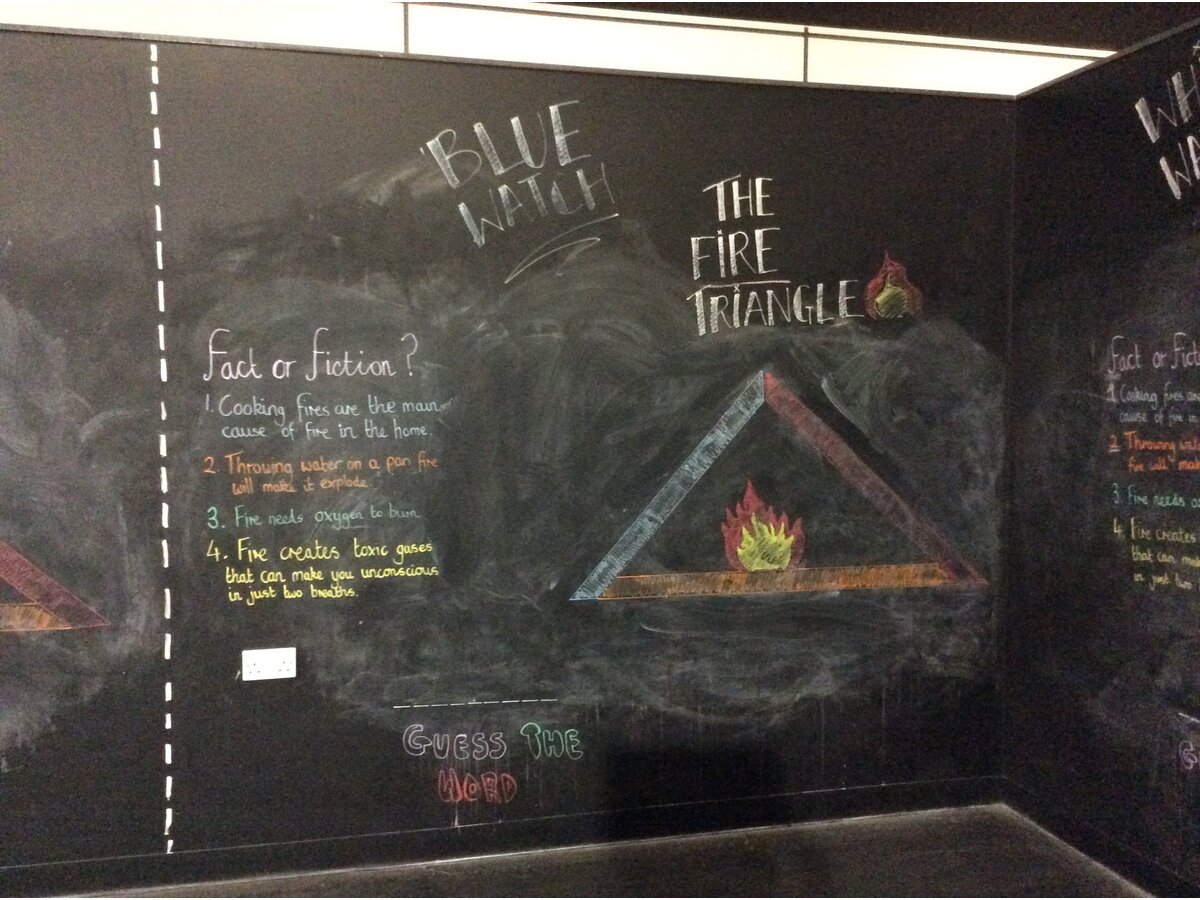 BLUE
WATCH
THE
FIRE
TRIANGLE
Fact or Fiction?
1. Cooking fires are the main
cause of fire in the home.
2. Throwing water on a pan fire
will make it explode.
3. Fire needs oxygen to burn
4. Fire creates toxic gases
that can make you unconscious
in just two breaths.
GUESS THE
WORD
Fact or
1. Cooking fires
cause of fire in
2. Throwing
fire will
3. Fire needs
4. Fire creates
that can
in just